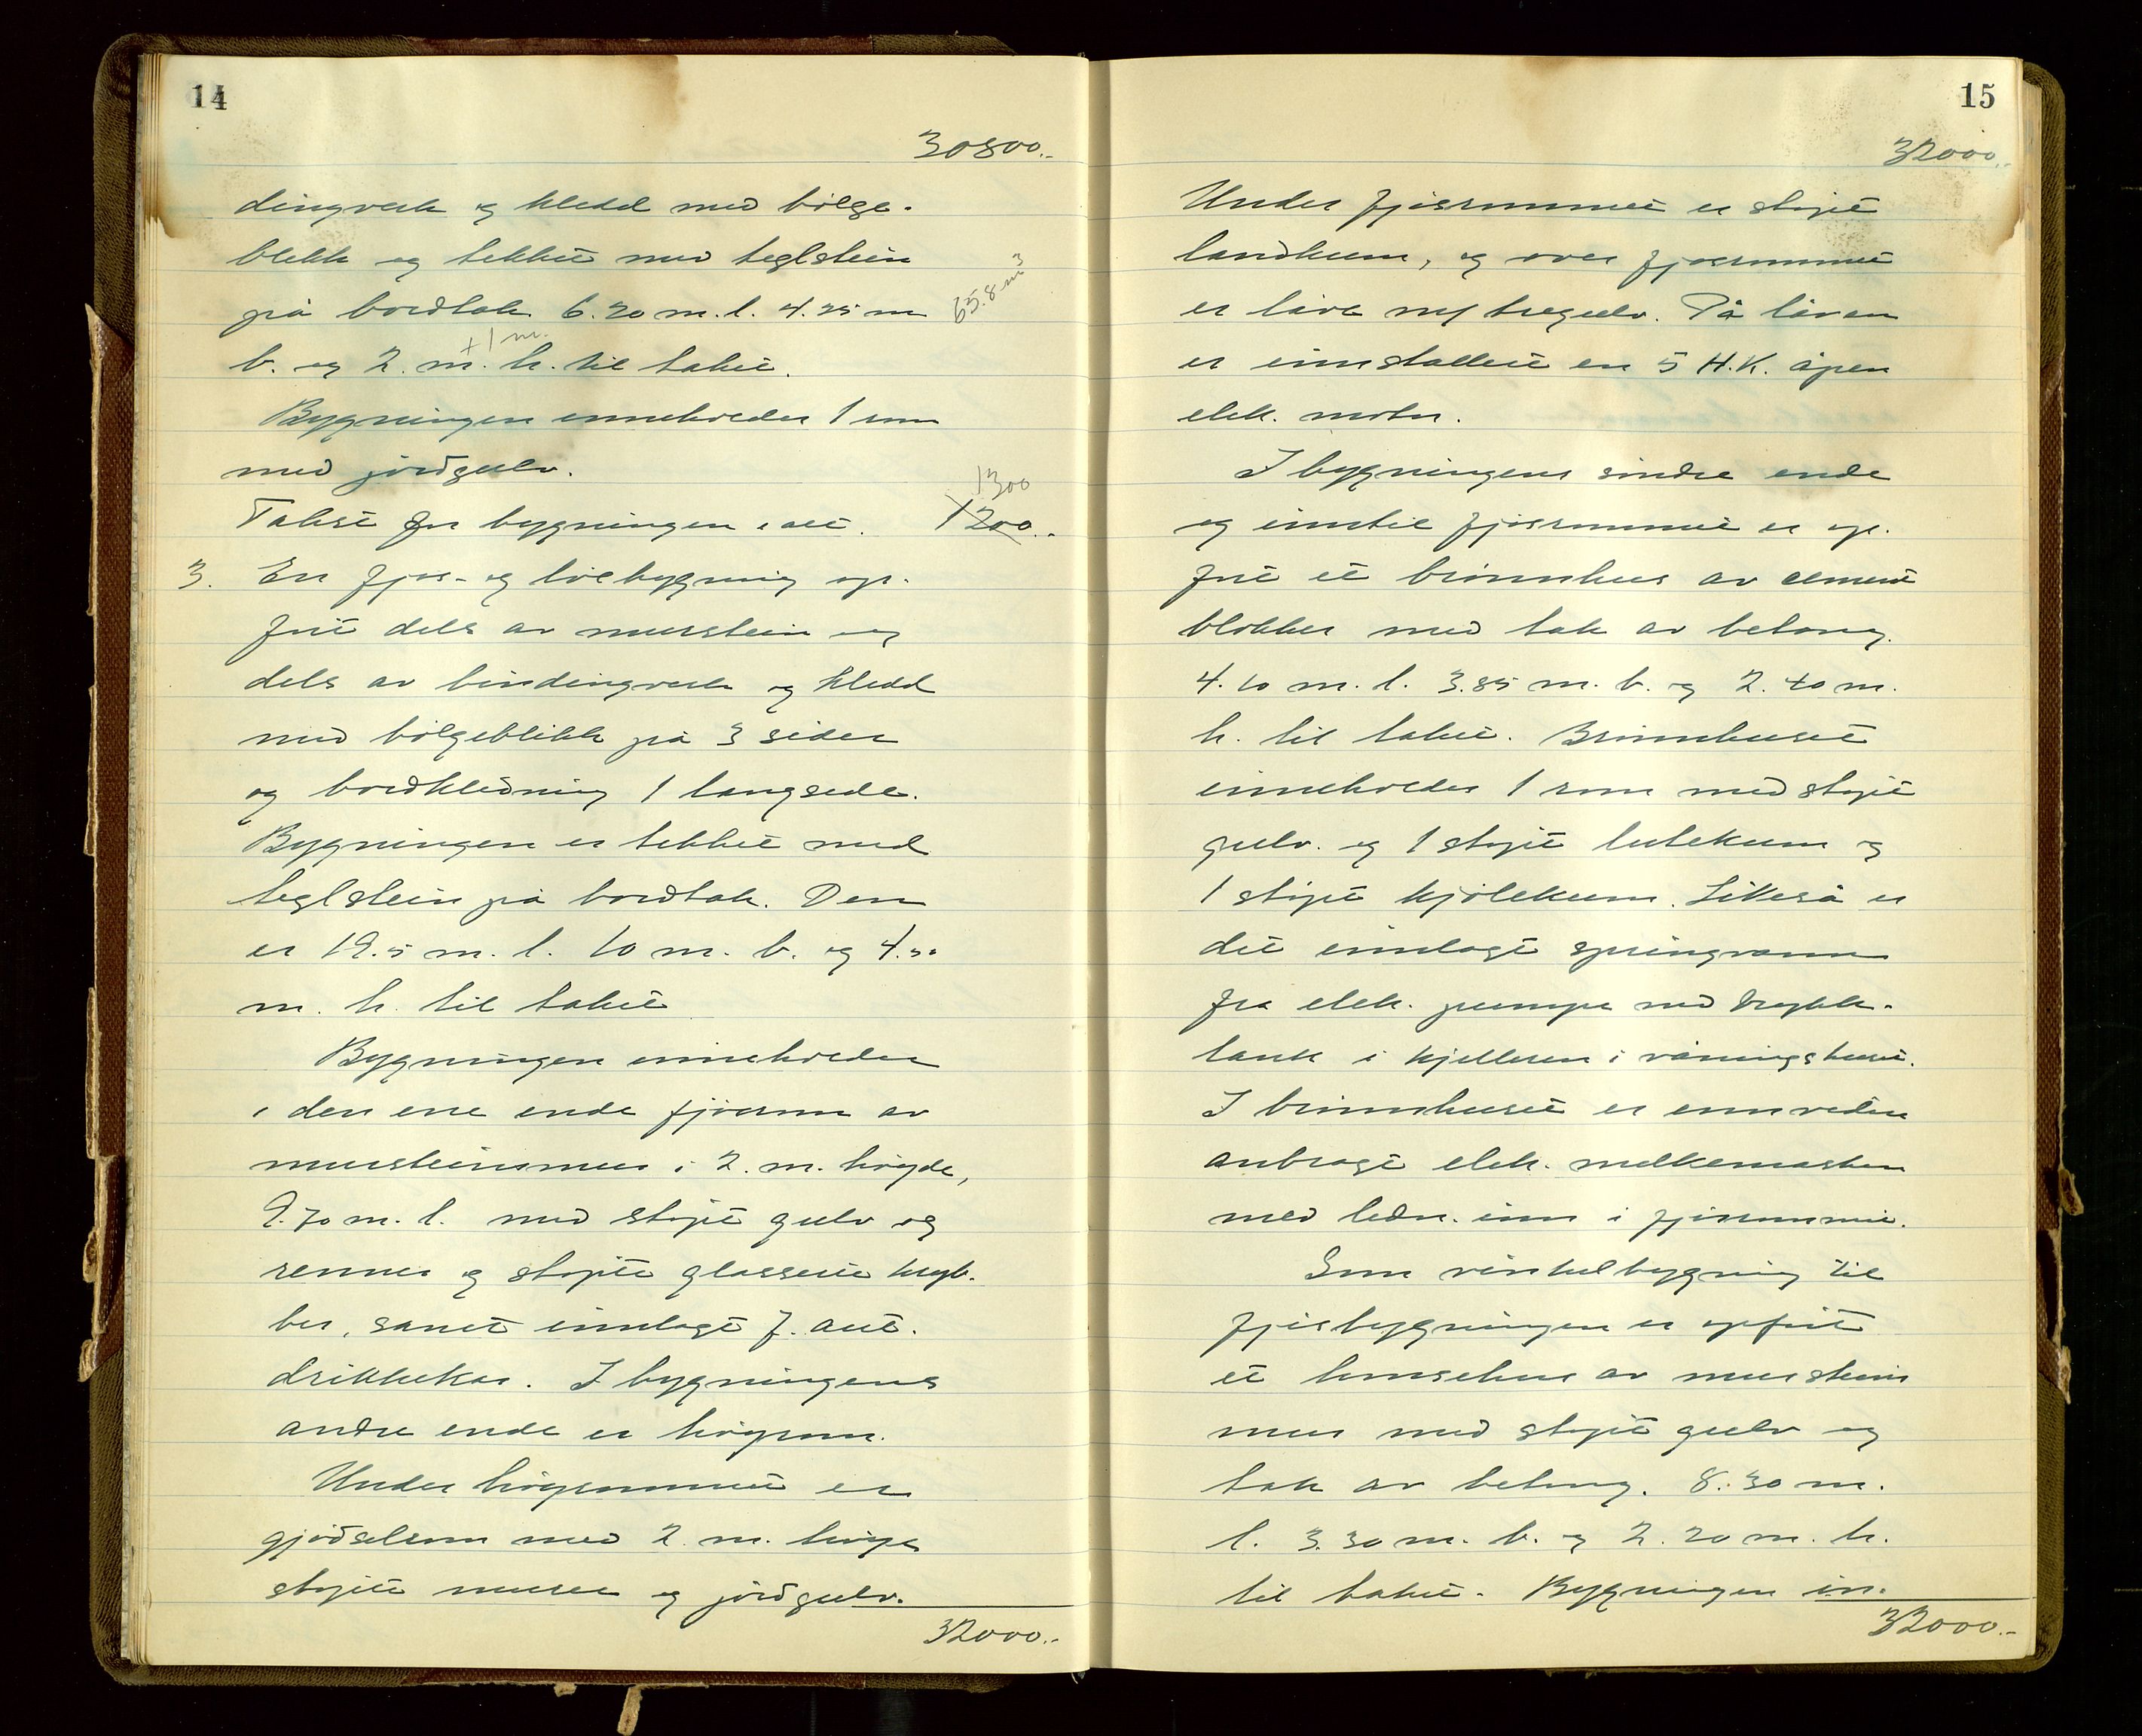 14
30800.-
dingverk og kledd med bølge-
blekk og tekket med teglstein
på bordtak 6.20 m. l. 4.25 m
65.8 m3
+1 m.
b. og 2. m. h. til taket.
Bygningen inneholder 1 rom
med jordgulv.
1300
Takst for bygningen i alt. 1200.-
3. En fjøs- og løebygning op-
ført dels av murstein og
dels av bindingverk og kledd
med bølgeblikk på 3 sider
og bordkledning 1 langside.
Bygningen er tekket med
teglstein på bordtak. Den
er 19.5 m. l. 10 m. b. og 4.50
m. h. til taket
Bygningen inneholder
i den ene ende fjøsrom av
mursteinsmur i 2. m. høyde,
9.70 m. l. med støpt gulv og
renner og støpte glasserte kryb-
ber, samt innlagt f. aut.
drikkekar. I bygningens
andre ende er høyrom.
Under høyrommet er
gjødselrom med 2. m. høye
støpte murer og jordgulv.
32000.-
15
32000.-
Under fjøsrommet er støpt
landkum, og over fjøsrommet
er låve m/ tregulv. På låven
er innstallert en 5 H.K. åpen
elek. motor.
I bygningens søndre ende
og inntil fjøsrommet er op-
ført et brønnhus av cement
blokker med tak av betong.
4.10 m. l. 3.85 m. b. og 2.40 m.
h. til taket. Brønnhuset
inneholder 1 rom med støpt
gulv. og 1 støpt lutekum og
1 støpt kjølekum. Likeså er
det innlagt springvann
fra elek. pumpe med trykk-
tank i kjelleren i våningshuset.
I brønnhuset er ennviden
anbragt elek. melkemaskin
med ledn. inn i fjøsrommet.
Som vinkelbygning til
fjøsbygningen er opført
et hønsehus av murstein
mur med støpt gulv og
tak av betong. 8.30 m.
l. 3.30 m. b. og 2.20 m. h.
til taket. Bygningen in-
32000.-